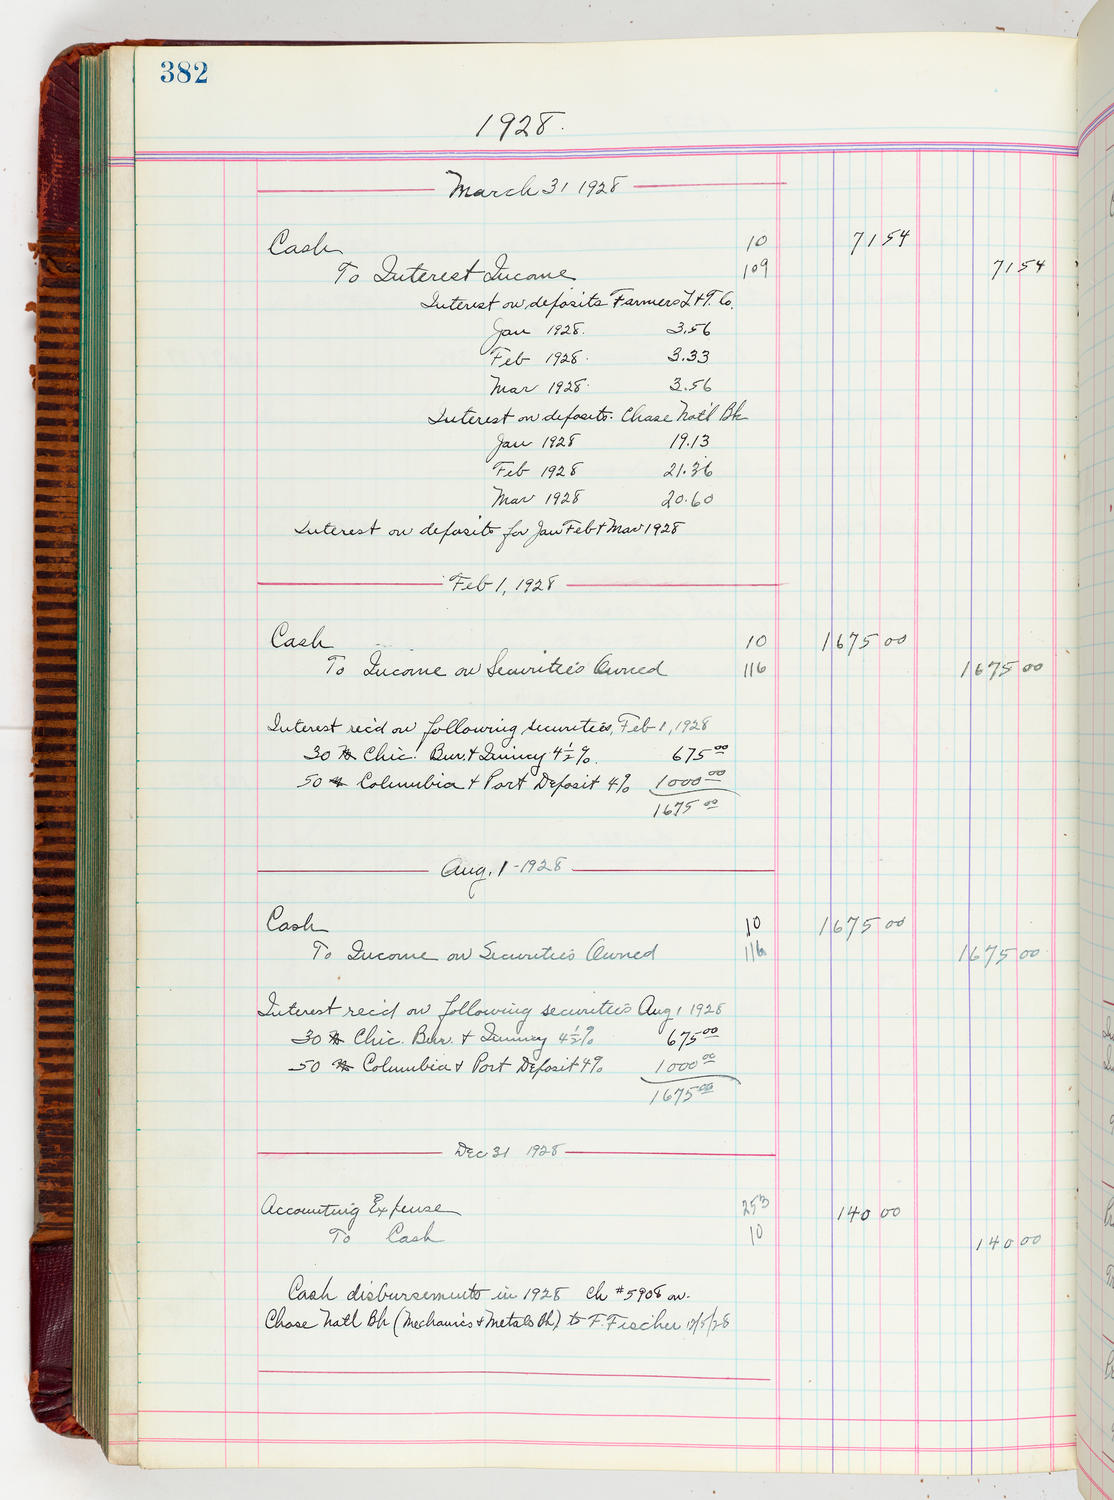 382
1928.
March 31 1928
Cash 10 71 54
To Interest Income 109 71 54
Interest on deposits Farmers L & T. Co.
Jan 1928. 3.56
Feb 1928. 3.33
Mar 1928. 3.56
Interest on deposits. Chase Nat'l Bk
Jan 1928 19.13
Feb 1928 21.36
Mar 1928 20.60
Interest on deposits for Jan Feb & Mar 1928
Feb 1, 1928
Cash 10 1675 00
To Income on Securities Owned 116 1675 00
Interest rec'd on following securities, Feb 1, 1928
30 M Chic. Bur. & Quincy 4½%. 675 00
50 M Columbia & Port Deposit 4% 1000 00
1675 00
Aug. 1 - 1928
Cash 10 1675 00
To Income on Securities Owned 116 1675 00
Interest rec'd on following securities Aug 1 1928
30 M Chic. Bur. & Quincy 4½% 675 00
50 M Columbia & Port Deposit 4% 1000 00
1675 00
Dec 31 1928
Accounting Expense 253 140 00
To Cash 10 140 00
Cash disbursements in 1928 Ch #5908 on.
Chase Natl Bk (Mechanics & Metals Bk) to F. Fischer 12/5/28